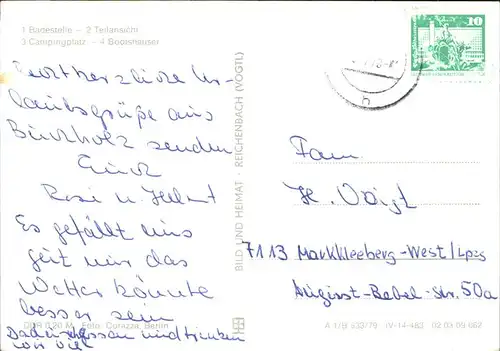 1 Badestelle – 2 Teilansicht
3 Campingplatz – 4 Bootshäuser
Recht herzliche Ur-
laubsgrüße aus
Buchholz senden
Euch
Rosi u. Helmut
Es gefällt uns
gut nur das
Wetter könnte
besser sein
Dafür essen und trinken
wir viel
DDR 0,20 M Foto: Darazza, Berlin
BILD UND HEIMAT · REICHENBACH (VOGTL)
10
Fam
H. Voigt
7113 Markkleeberg-West/Lpzg
August-Bebel-Str. 50a
A 1/B 533/79 IV-14-483 02 03 09 682